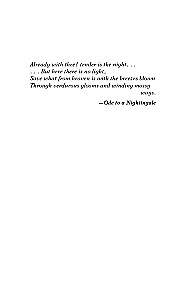 Already with thee! tender is the night . . .
. . . But here there is no light,
Save what from heaven is with the breezes blown
Through verdurous glooms and winding mossy
ways.
—Ode to a Nightingale